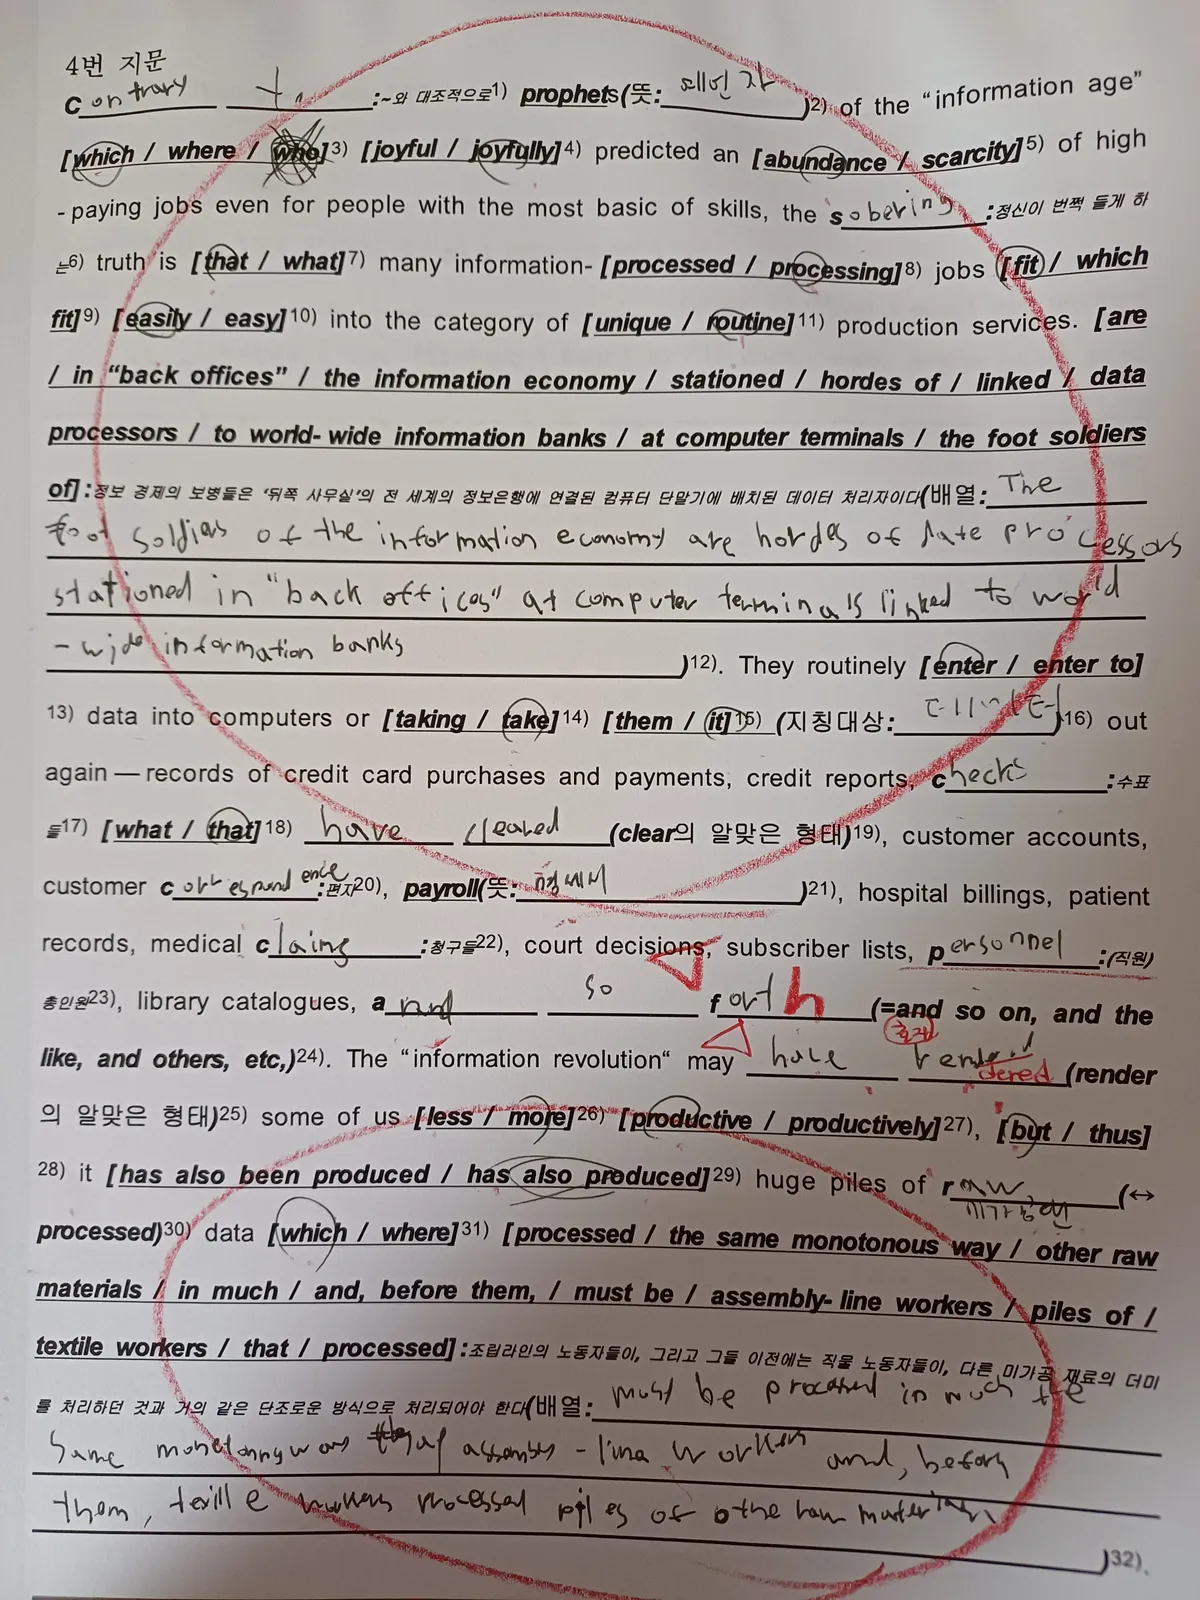 4번 지문
contrary t :~와 대조적으로1) prophets(뜻: 예언자 )2) of the “information age”
[which / where / who]3) [joyful / joyfully]4) predicted an [abundance / scarcity]5) of high
-paying jobs even for people with the most basic of skills, the sobering :정신이 번쩍 들게 하
는6) truth is [that / what]7) many information- [processed / processing]8) jobs [fit / which
fit]9) [easily / easy]10) into the category of [unique / routine]11) production services. [are
/ in “back offices” / the information economy / stationed / hordes of / linked / data
processors / to world-wide information banks / at computer terminals / the foot soldiers
of] :정보 경제의 보병들은 ‘뒤쪽 사무실’의 전 세계의 정보은행에 연결된 컴퓨터 단말기에 배치된 데이터 처리자이다(배열: The
foot soldiers of the information economy are hordes of date processors
stationed in "back offices" at computer terminals linked to world
- wide information banks )12). They routinely [enter / enter to]
13) data into computers or [taking / take]14) [them / it]15) (지칭대상: 데이터 )16) out
again — records of credit card purchases and payments, credit reports, checks :수표
들17) [what / that]18) have cleared (clear의 알맞은 형태)19), customer accounts,
customer correspondence :편지20), payroll(뜻: 명세서 )21), hospital billings, patient
records, medical claims :청구들22), court decisions, subscriber lists, personnel :(직원)
총인원23), library catalogues, and so forth (=and so on, and the
like, and others, etc,)24). The “information revolution“ may have rendered (render
의 알맞은 형태)25) some of us [less / more]26) [productive / productively]27), [but / thus]
28) it [has also been produced / has also produced]29) huge piles of raw (↔
미가공된
processed)30) data [which / where]31) [processed / the same monotonous way / other raw
materials / in much / and, before them, / must be / assembly-line workers / piles of /
textile workers / that / processed] :조립라인의 노동자들이, 그리고 그들 이전에는 직물 노동자들이, 다른 미가공 재료의 더미
를 처리하던 것과 거의 같은 단조로운 방식으로 처리되어야 한다(배열: must be processed in much the
same way that assembly - line workers and, before
them, textile workers processed piles of other raw materials
)32).